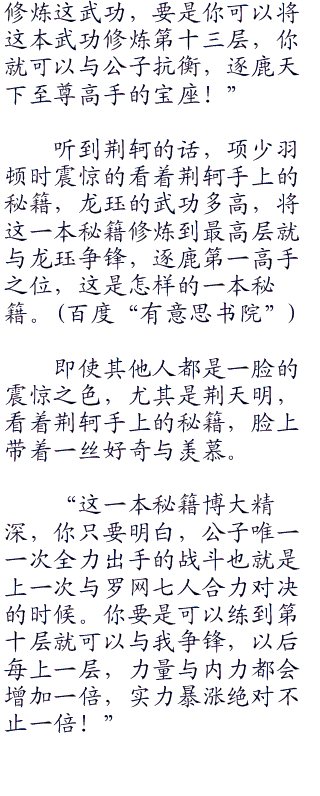 修炼这武功，要是你可以将
这本武功修炼第十三层，你
就可以与公子抗衡，逐鹿天
下至尊高手的宝座！”
听到荆轲的话，项少羽
顿时震惊的看着荆轲手上的
秘籍，龙珏的武功多高，将
这一本秘籍修炼到最高层就
与龙珏争锋，逐鹿第一高手
之位，这是怎样的一本秘
籍。(百度“有意思书院”)
即使其他人都是一脸的
震惊之色，尤其是荆天明，
看着荆轲手上的秘籍，脸上
带着一丝好奇与羡慕。
“这一本秘籍博大精
深，你只要明白，公子唯一
一次全力出手的战斗也就是
上一次与罗网七人合力对决
的时候。你要是可以练到第
十层就可以与我争锋，以后
每上一层，力量与内力都会
增加一倍，实力暴涨绝对不
止一倍！”